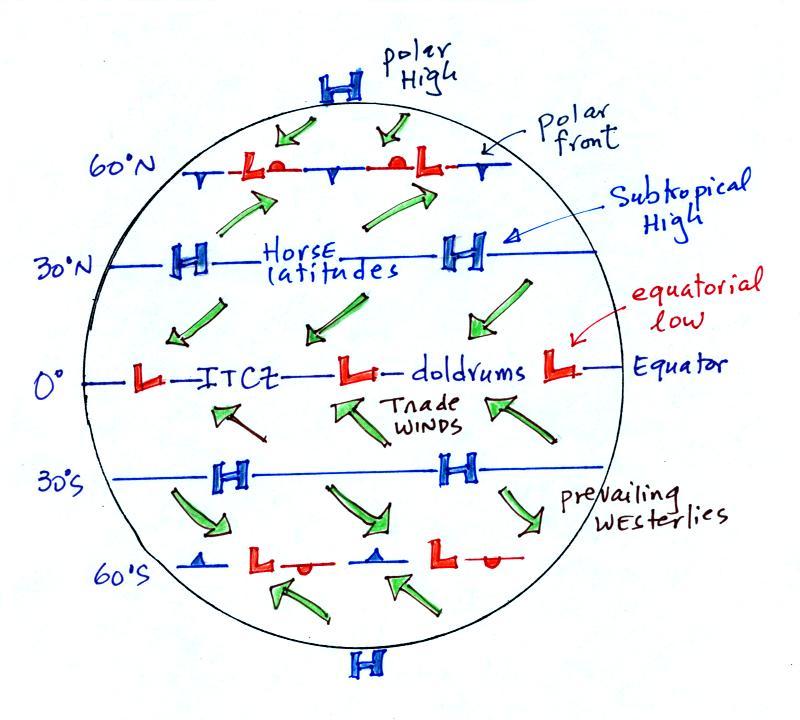 H
polar
High
60°N
L
L
polar
front
30°N
H
Horse
latitudes
H
Subtropical
High
equatorial
low
0°
L
ITCZ
L
doldrums
L
Equator
Trade
WINDS
30°S
H
H
prevailing
WEsterlies
60°S
L
L
H